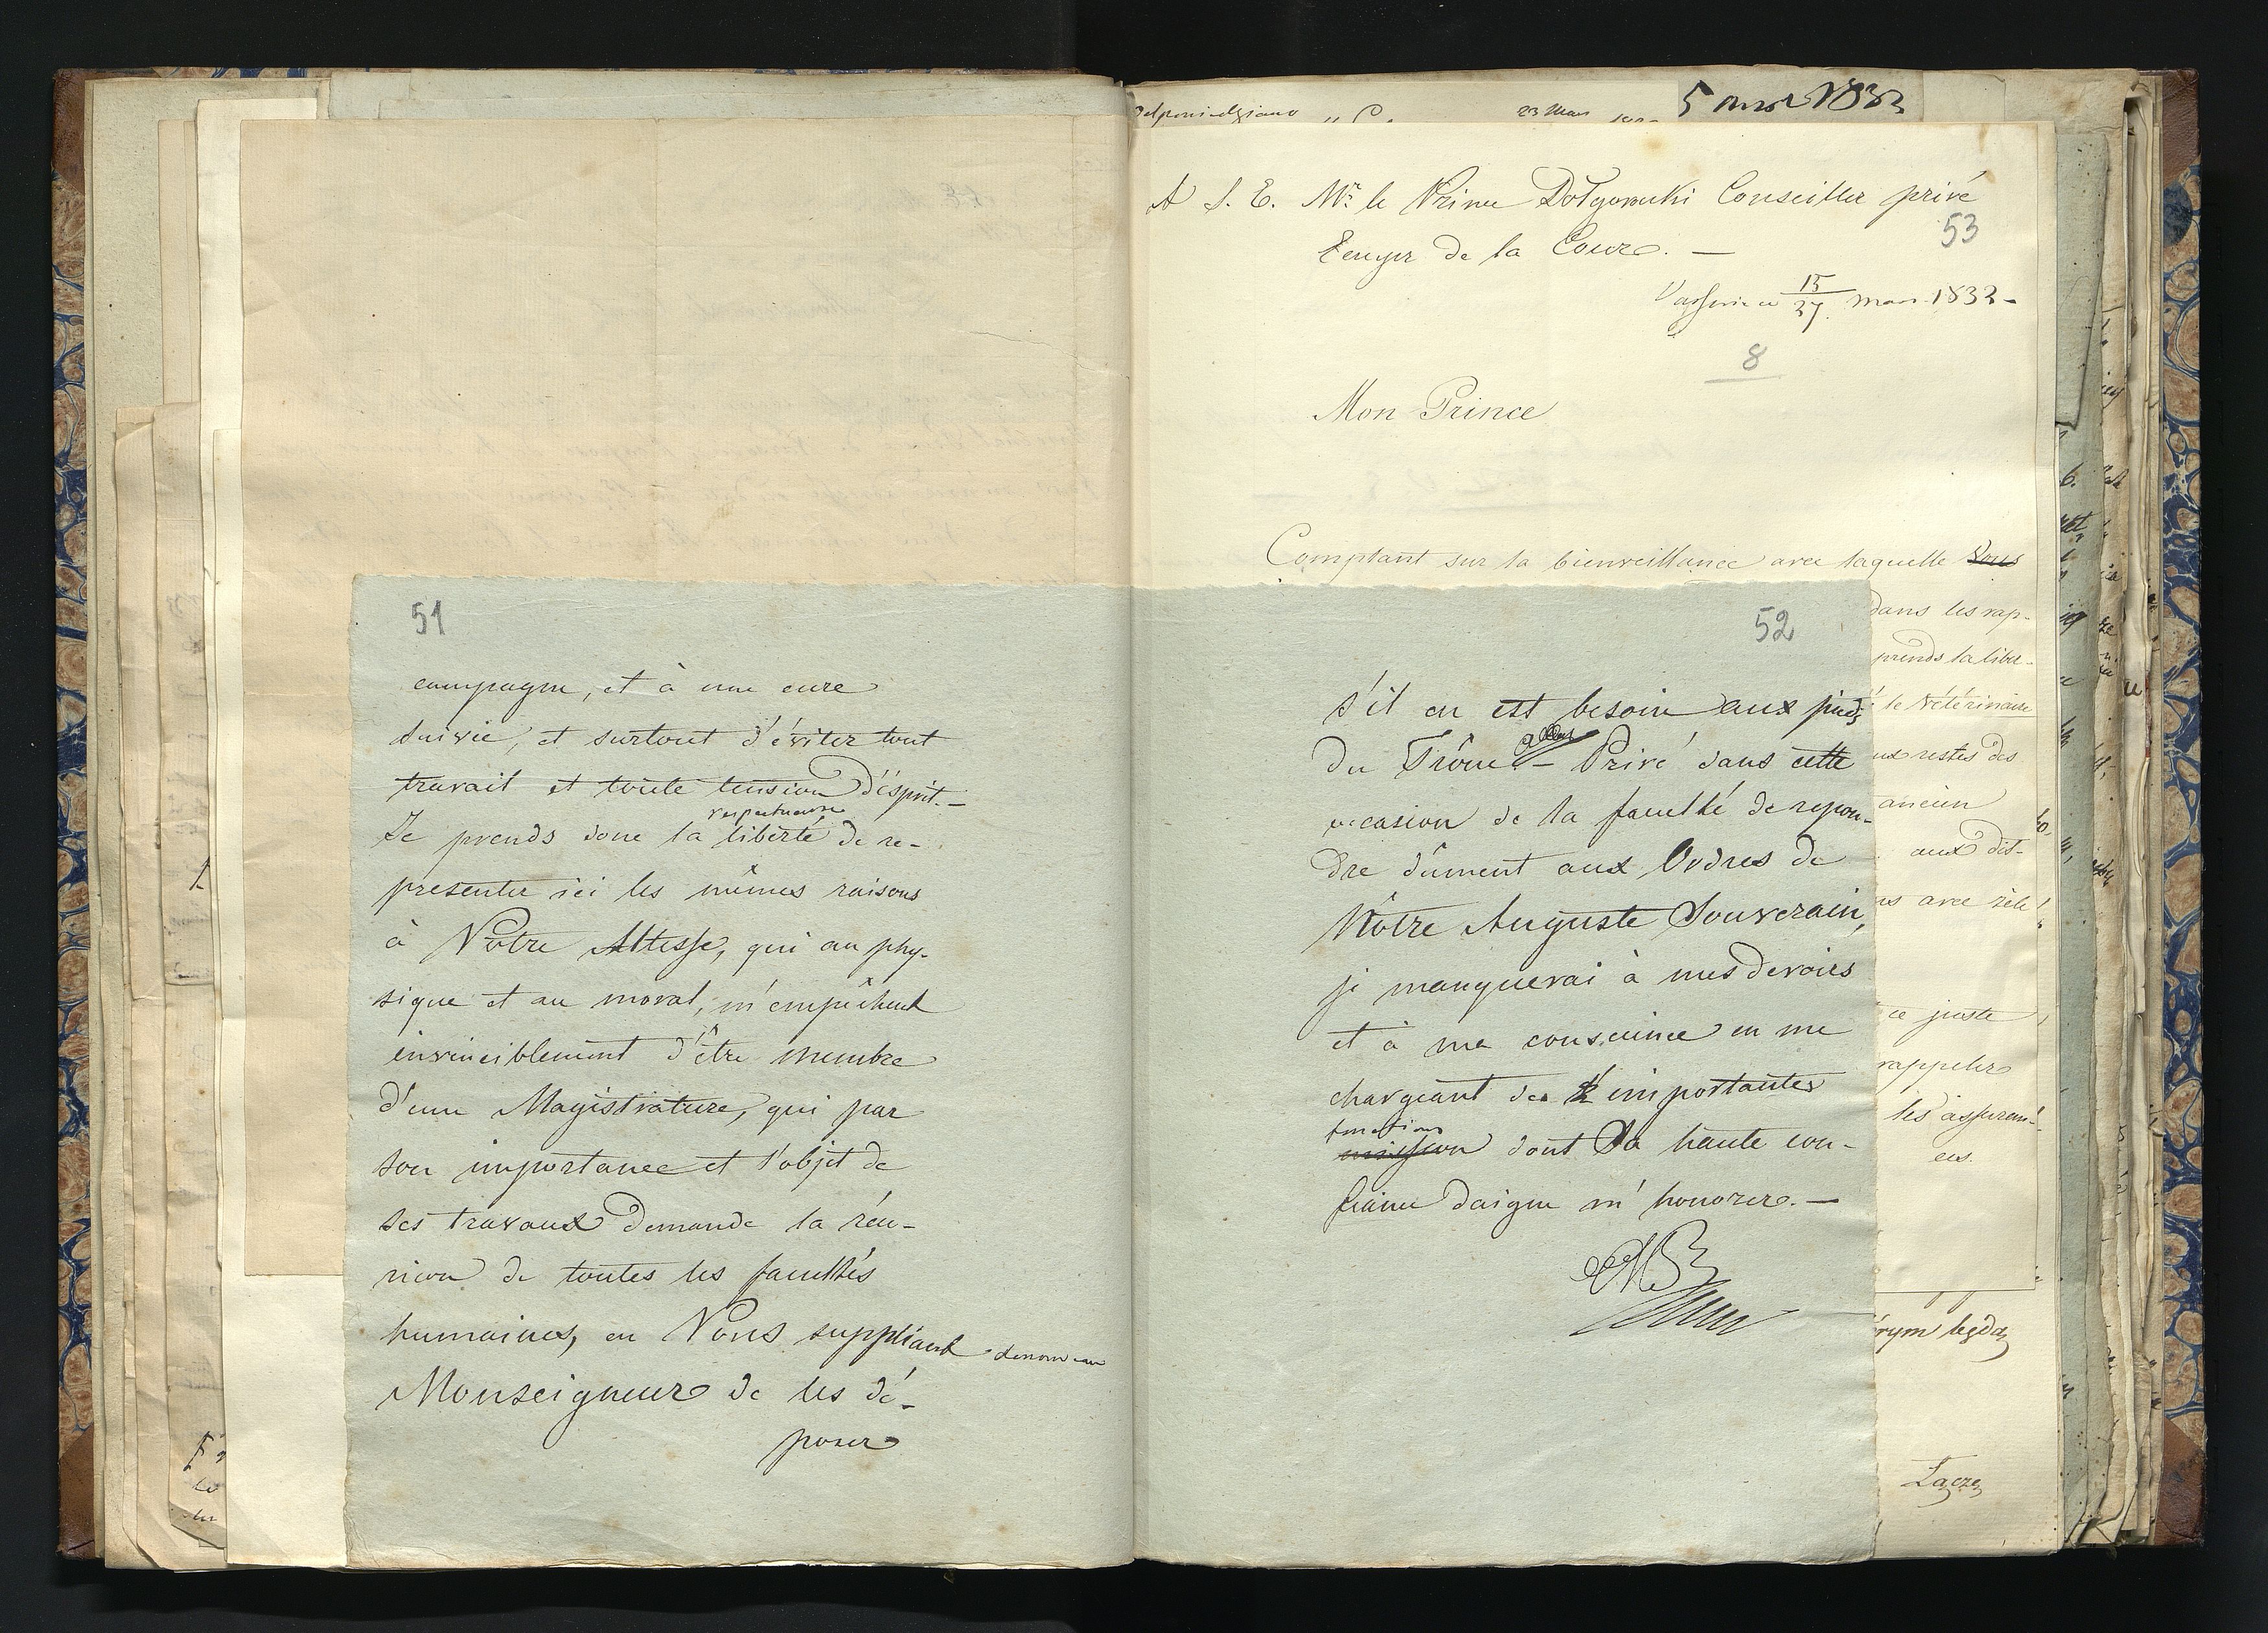 51
campagne, et à une cure
suivie, et surtout d'éviter tout
travail et toute tension d'ésprit.-
respectueuse
Je prends donc la liberté de re-
presenter ici les mêmes raisons
à Votre Altesse, qui au phy-
sique et au moral, m'empêchent
invinciblement d'être membre
d'une Magistrature, qui par
son importance et l'objet de
ses travaux demande la réu-
nion de toutes les facultés
humaines, en Vous suppliant de nouveau
Monseigneur de les dé-
poser
52
s'il en est besoin aux pieds
du Trône. - Privé dans cette
occasion de la faculté de repon-
dre dûment aux Ordres de
Nôtre Auguste Souverain,
je manquerai à mes devoirs
et à ma conscience en me
chargeant des importantes
fonctions
mission dont Sa haute con-
fiance daigne m'honorer. -
23 Mars
5 mar 1832
A S. E. Mr. le Prince Dolgorouki Conseiller privé
53
Ecuyer de la Cour. -
Varsovie ce 15/27 mars 1832 -
8
Mon Prince
Comptant sur la bienveillance avec laquelle Vous
dans les rap-
prends la liber-
le Vétérinaire
aux restes des
ancien
aux dis-
avec zèle
ce juste
rappeler
les assuran-
ces.